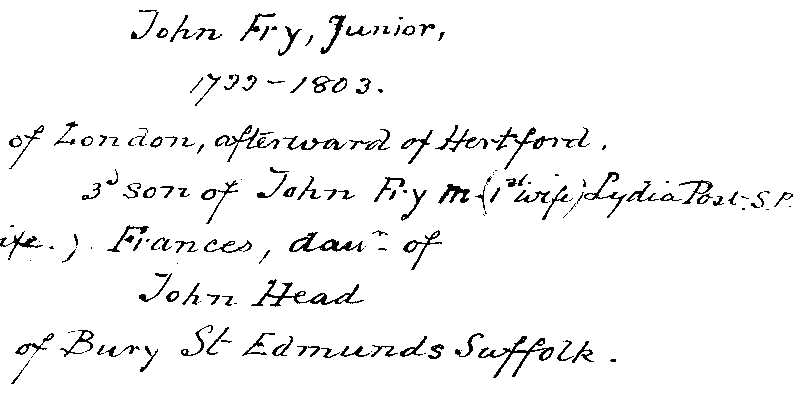 John Fry, Junior,
1722-1803.
of London, afterward of Hertford.
3d son of John Fry m. (1st wife) Lydia Post. S.P.
ife.) Frances, daur. of
John Head
of Bury St Edmunds Suffolk.